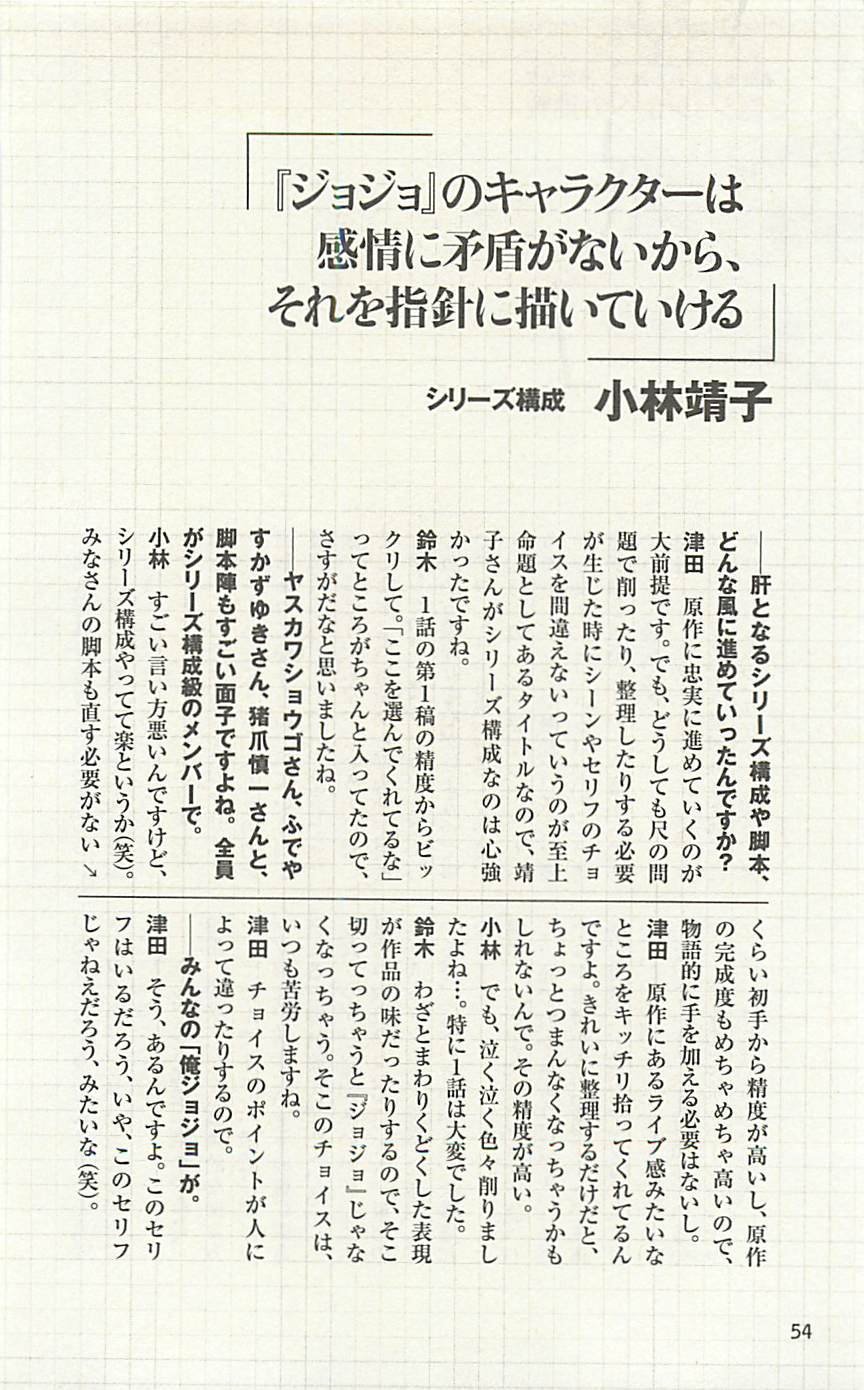 『ジョジョ』のキャラクターは
感情に矛盾がないから、
それを指針に描いていける
シリーズ構成　小林靖子
――肝となるシリーズ構成や脚本、
どんな風に進めていったんですか？
津田　原作に忠実に進めていくのが
大前提です。でも、どうしても尺の問
題で削ったり、整理したりする必要
が生じた時にシーンやセリフのチョ
イスを間違えないっていうのが至上
命題としてあるタイトルなので、靖
子さんがシリーズ構成なのは心強
かったですね。
鈴木　1話の第1稿の精度からビッ
クリして。「ここを選んでくれてるな」
ってところがちゃんと入ってたので、
さすがだなと思いましたね。
――ヤスカワショウゴさん、ふでや
すかずゆきさん、猪爪慎一さんと、
脚本陣もすごい面子ですよね。全員
がシリーズ構成級のメンバーで。
小林　すごい言い方悪いんですけど、
シリーズ構成やってて楽というか（笑）。
みなさんの脚本も直す必要がない↘
くらい初手から精度が高いし、原作
の完成度もめちゃめちゃ高いので、
物語的に手を加える必要はないし。
津田　原作にあるライブ感みたいな
ところをキッチリ拾ってくれてるん
ですよ。きれいに整理するだけだと、
ちょっとつまんなくなっちゃうかも
しれないんで。その精度が高い。
小林　でも、泣く泣く色々削りまし
たよね…。特に1話は大変でした。
鈴木　わざとまわりくどくした表現
が作品の味だったりするので、そこ
切ってっちゃうと『ジョジョ』じゃな
くなっちゃう。そこのチョイスは、
いつも苦労しますね。
津田　チョイスのポイントが人に
よって違ったりするので。
――みんなの「俺ジョジョ」が。
津田　そう、あるんですよ。このセリ
フはいるだろう、いや、このセリフ
じゃねえだろう、みたいな（笑）。
54